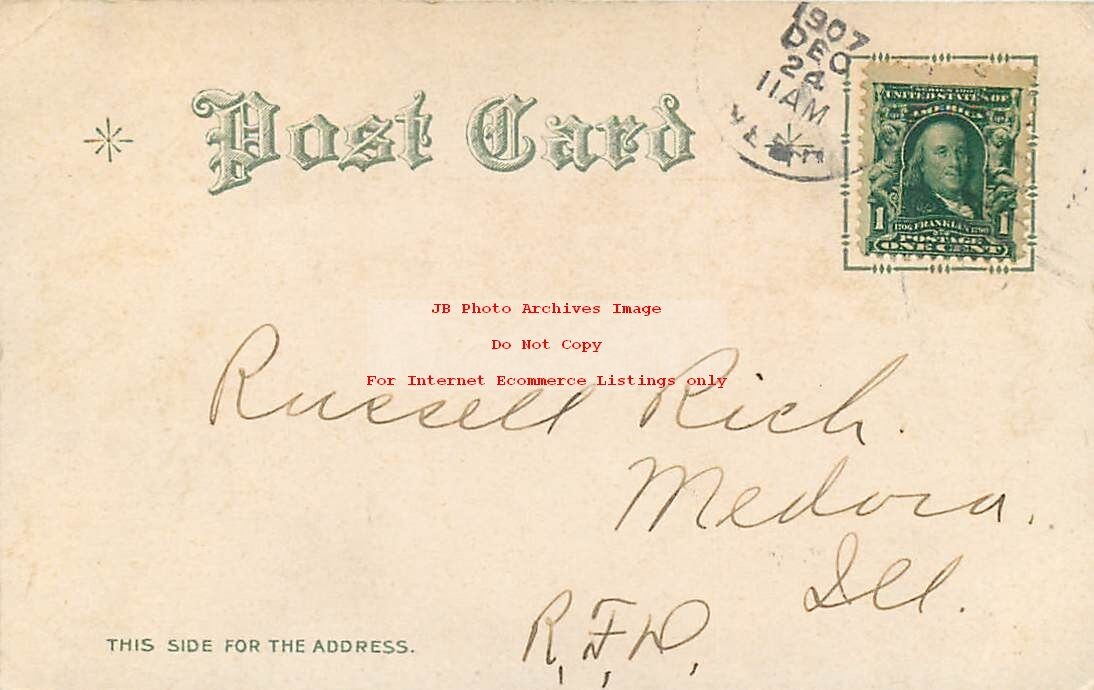 1907
DEC
24
11 AM
Post Card
SERIES 1902
UNITED STATES OF
AMERICA
1 1
1706 FRANKLIN 1790
POSTAGE
ONE CENT
JB Photo Archives Image
Do Not Copy
For Internet Ecommerce Listings only
Russell Rich.
Medora.
Ill.
R.F.D.
THIS SIDE FOR THE ADDRESS.